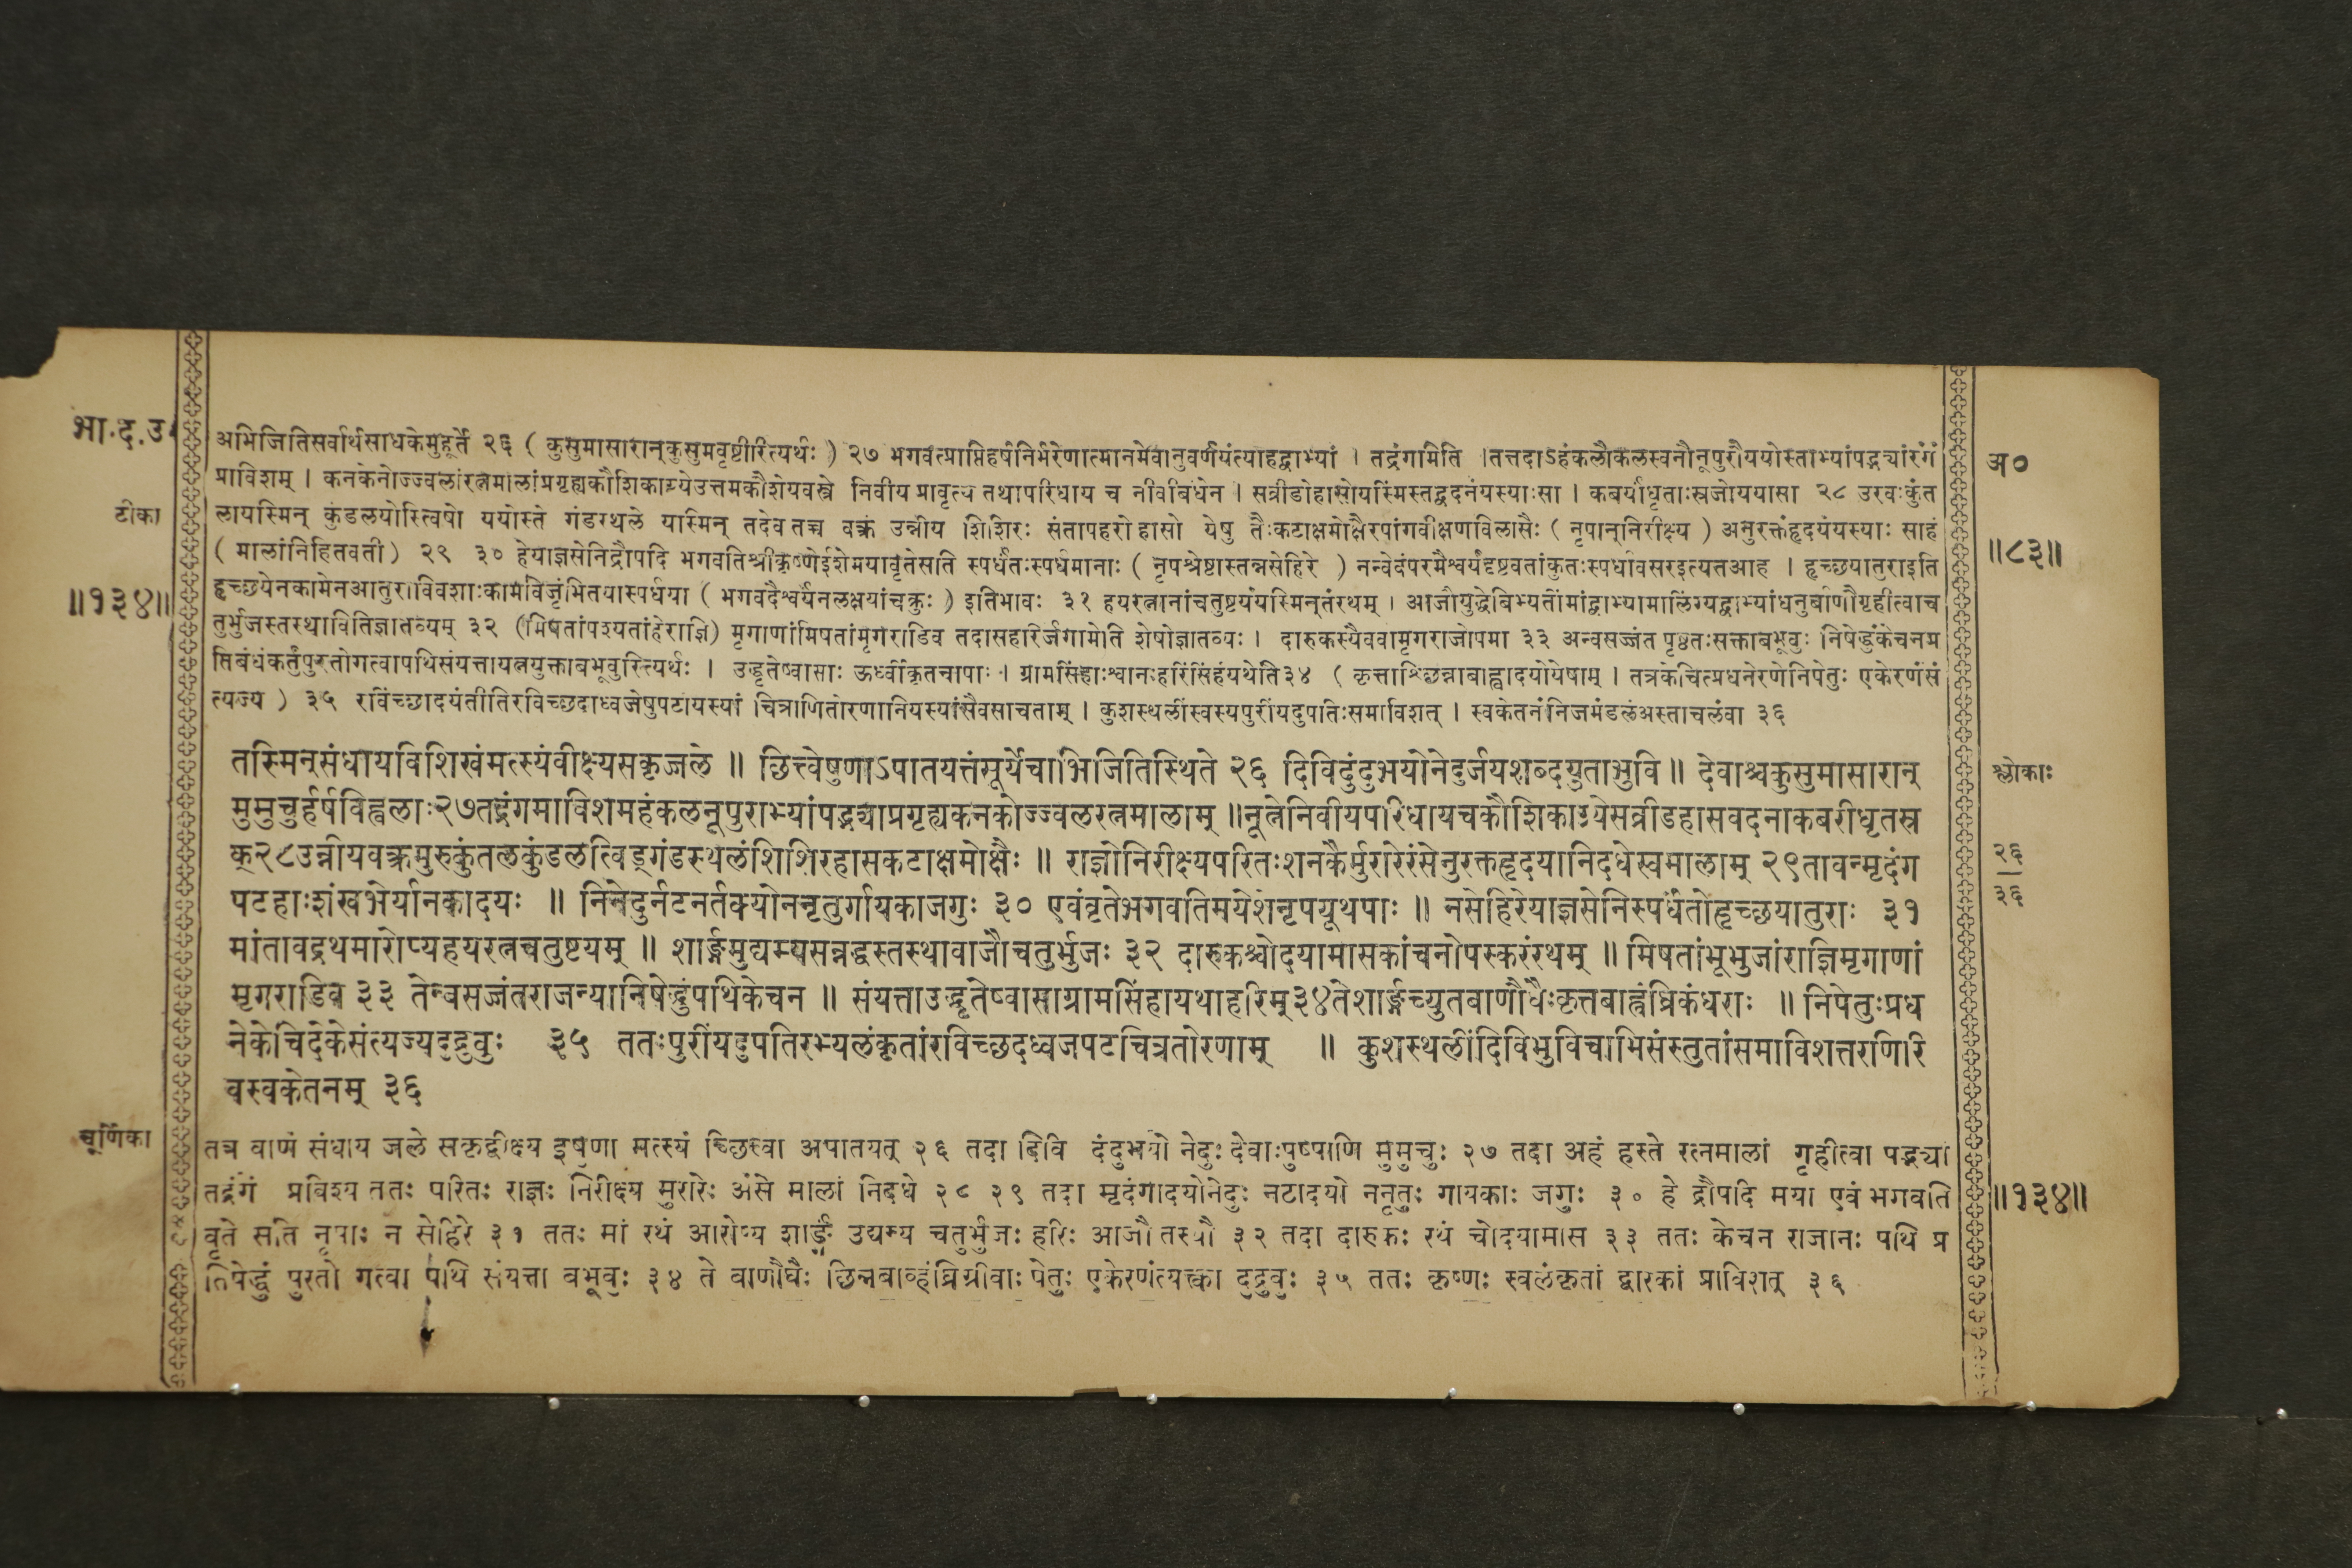 भा.द.उ
अभिजितिसर्वार्थसाधकेमुहूर्ते २६ ( कुसुमासारान्कुसुमवृष्टीरित्यर्थः ) २७ भगवत्प्राप्तिहर्षनिर्भरेणात्मानमेवानुवर्णयंत्याहद्वाभ्यां । तद्रंगमिति ।तत्तदाऽहंकलौकलस्वनौनूपुरौययोस्ताभ्यांपद्भ्यांरंगं
अ०
प्राविशम् । कनकेनोज्ज्वलांरत्नमालांप्रगृह्यकौशिकाग्र्येउत्तमकौशेयवस्त्रे निवीय प्रावृत्य तथापरिधाय च नीवीबंधेन । सव्रीडोहासोयस्मिंस्तद्वदनंयस्याःसा । कबर्यांधृताःस्रजोययासा २८ उरवःकुंत
टीका
लायस्मिन् कुंडलयोस्त्विषो ययोस्ते गंडस्थले यस्मिन् तदेव तच्च वक्त्रं उन्नीय शिशिरः संतापहरो हासो येषु तैःकटाक्षमोक्षैरपांगवीक्षणविलासैः ( नृपान्निरीक्ष्य ) अनुरक्तंहृदयंयस्याः साहं
( मालांनिहितवती ) २९ ३० हेयाज्ञसेनिद्रौपदि भगवतिश्रीकृष्णेईशेमयावृतेसति स्पर्धंतःस्पर्धमानाः ( नृपश्रेष्ठास्तन्नसेहिरे ) नन्वेदंपरमैश्वर्यंदृष्टवतांकुतःस्पर्धावसरइत्यतआह । हृच्छयातुराइति
॥८३॥
हृच्छयेनकामेनआतुराविवशाःकामविजृंभितयास्पर्धया ( भगवदैश्वर्यंनलक्षयांचक्रुः ) इतिभावः ३१ हयरत्नानांचतुष्टयंयस्मिन्तंरथम् । आजौयुद्धेबिभ्यतींमांद्वाभ्यामालिंग्यद्वाभ्यांधनुर्बाणौगृहीत्वाच
॥१३४॥
तुर्भुजस्तस्थावितिज्ञातव्यम् ३२ (मिषतांपश्यतांहेराज्ञि) मृगाणांमिषतांमृगराडिव तदासहरिर्जगामेति शेषोज्ञातव्यः । दारुकस्यैववामृगराजोपमा ३३ अन्वसज्जंत पृष्ठतःसक्ताबभूवुः निषेद्धुंकेचनप्र
तिबंधंकर्तुंपुरतोगत्वापथिसंयत्तायत्नयुक्ताबभूवुरित्यर्थः । उद्धृतेष्वासाः ऊर्ध्वीकृतचापाः । ग्रामसिंहाःश्वानःहरिंसिंहंयथेति३४ ( कृत्ताश्छिन्नाबाह्वादयोयेषाम् । तत्रकेचित्प्रधनेरणेनिपेतुः एकेरणंसं
त्यज्य ) ३५ रविंच्छादयंतीतिरविच्छदाध्वजेषुपटायस्यां ।चित्राणितोरणानियस्यांसैवसाचताम् । कुशस्थलींस्वस्यपुरींयदुपतिःसमाविशत् । स्वकेतनंनिजमंडलंअस्ताचलंवा ३६
तस्मिन्संधायविशिखंमत्स्यंवीक्ष्यसकृज्जले ॥ छित्त्वेषुणाऽपातयत्तंसूर्येचाभिजितिस्थिते २६ दिविदुंदुभयोनेदुर्जयशब्दयुताभुवि ॥ देवाश्चकुसुमासारान्
श्लोकाः
मुमुचुर्हर्षविह्वलाः२७तद्रंगमाविशमहंकलनूपुराभ्यांपद्भ्यांप्रगृह्यकनकोज्ज्वलरत्नमालाम् ॥नूत्नेनिवीयपरिधायचकौशिकाग्र्येसव्रीडहासवदनाकबरीधृतस्र
क्२८उन्नीयवक्त्रमुरुकुंतलकुंडलत्विड्गंडस्थलंशिशिरहासकटाक्षमोक्षैः ॥ राज्ञोनिरीक्ष्यपरितःशनकैर्मुरारेरंसेनुरक्तहृदयानिदधेस्वमालाम् २९तावन्मृदंग
२६
३६
पटहाःशंखभेर्यानकादयः ॥ निनेदुर्नटनर्तक्योननृतुर्गायकाजगुः ३० एवंवृतेभगवतिमयेशेनृपयूथपाः ॥ नसेहिरेयाज्ञसेनिस्पर्धंतोहृच्छयातुराः ३१
मांतावद्रथमारोप्यहयरत्नचतुष्टयम् ॥ शार्ङ्गमुद्यम्यसन्नद्धस्तस्थावाजौचतुर्भुजः ३२ दारुकश्चोदयामासकांचनोपस्करंरथम् ॥ मिषतांभूभुजांराज्ञिमृगाणां
मृगराडिव ३३ तेन्वसज्जंतराजन्यानिषेद्धुंपथिकेचन ॥ संयत्ताउद्धृतेष्वासाग्रामसिंहायथाहरिम्३४तेशार्ङ्गच्युतबाणौघैःकृत्तबाह्वंघ्रिकंधराः ॥ निपेतुःप्रध
नेकेचिदेकेसंत्यज्यदुद्रुवुः ३५ ततःपुरींयदुपतिरभ्यलंकृतांरविच्छदध्वजपटचित्रतोरणाम् ॥ कुशस्थलींदिविभुविचाभिसंस्तुतांसमाविशत्तरणिरि
वस्वकेतनम् ३६
चूर्णिका
तत्र बाणं संधाय जले सकृद्वीक्ष्य इषुणा मत्स्यं च्छित्त्वा अपातयत् २६ तदा दिवि दंदुभयो नेदुः देवाःपुष्पाणि मुमुचुः २७ तदा अहं हस्ते रत्नमालां गृहीत्वा पद्भ्यां
तद्रंगं प्रविश्य ततः परितः राज्ञः निरीक्ष्य मुरारेः अंसे मालां निदधे २८ २९ तदा मृदंगादयोनेदुः नटादयो ननृतुः गायकाः जगुः ३० हे द्रौपदि मया एवं भगवति
॥१३४॥
वृते सति नृपाः न सेहिरे ३१ ततः मां रथं आरोप्य शार्ङ्गं उद्यम्य चतुर्भुजः हरिः आजौ तस्थौ ३२ तदा दारुकः रथं चोदयामास ३३ ततः केचन राजानः पथि प्र
तिषेद्धुं पुरतो गत्वा पथि संयत्ता बभूवुः ३४ ते बाणौघैः छिन्नबाव्हंघ्रिग्रीवाः पेतुः एकेरणंत्यक्त्वा दुद्रुवुः ३५ ततः कृष्णः स्वलंकृतां द्वारकां प्राविशत् ३६